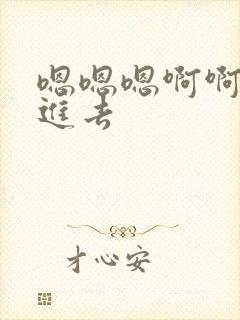 嗯嗯嗯啊啊
進去
才心安